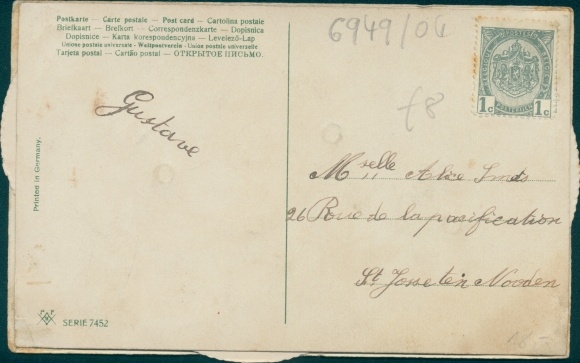 Postkarte – Carte postale – Post card – Cartolina postale
Briefkaart – Brefkort – Correspondenzkarte – Dopisnica
Dopisnice – Karta korespondencyjna – Levelező-Lap
Unione postale universale – Weltpostverein – Union postale universelle
Tarjeta postal – Cartão postal – ОТКРЫТОЕ ПИСЬМО.
6949/04
1c 1c
f8
Gustave
Mselle Alice Smets
26 Rue de la pacification
St Josse ten Nooden
Printed in Germany.
SERIE 7452